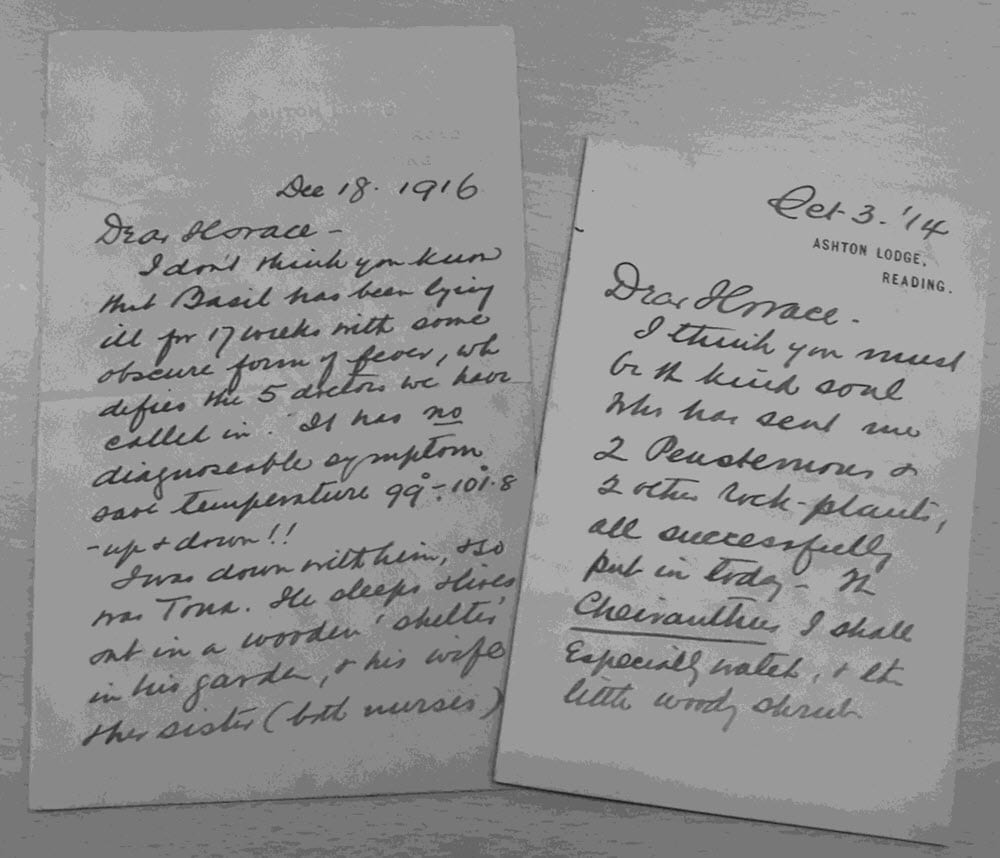 Dec 18. 1916
Dear Horace -
I don't think you know
that Basil has been lying
ill for 17 weeks with some
obscure form of fever, wh
defies the 5 doctors we have
called in. It has no
diagnoseable symptom
save temperature 99° - 101°.8
- up & down!!
I was down with him, & so
was Tona. He sleeps & lives
out in a wooden 'shelter'
in his garden, & his wife
& her sister (both nurses)
Oct 3. '14
ASHTON LODGE,
READING.
Dear Horace -
I think you must
be the kind soul
who has sent me
2 Penstemons &
2 other rock-plants,
all successfully
put in today - The
Cheiranthus I shall
especially watch, & the
little woody shrub